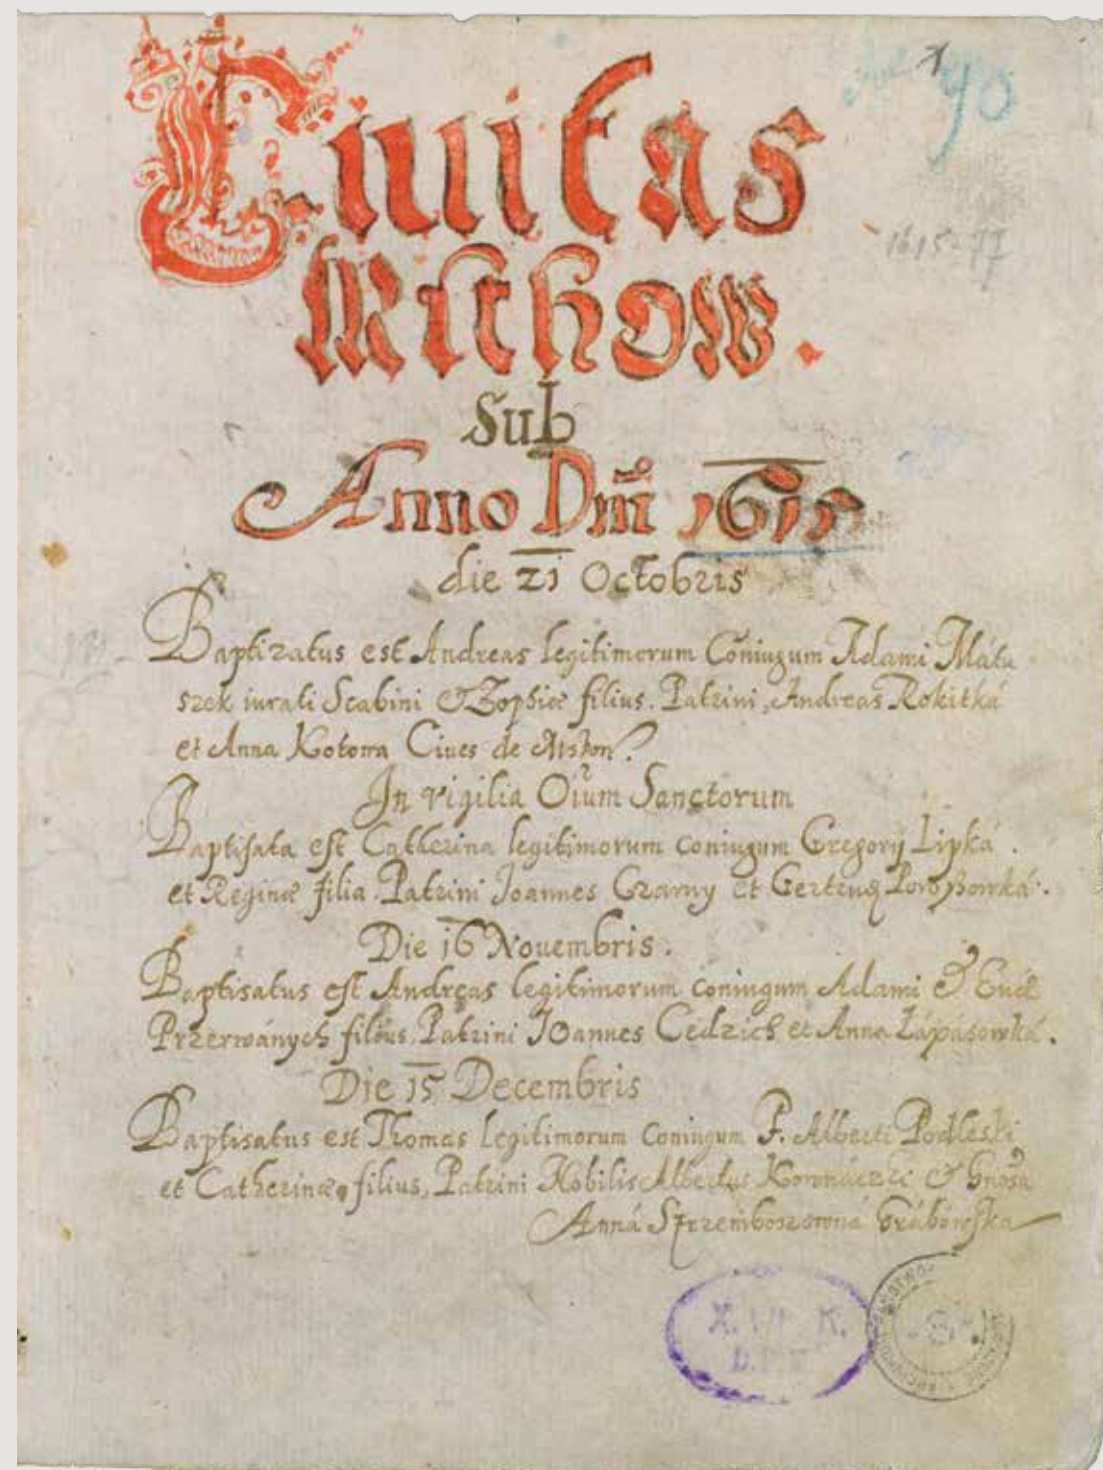 Ciuitas
Msthow.
Sub
Anno Dni 1615
die 21 Octobris
Baptizatus est Andreas legitimorum Coniugum Adami Matu
szek iurati Scabini et Zophiæ filius. Patrini, Andreas Rokitká
et Anna Kotowa Ciues de
In vigilia Oium Sanctorum
Baptisata est Catherina legitimorum coniugum Gregorij Lipká.
et Reginæ filia. Patrini Joannes Czarny et
Die 16 Nouembris.
Baptisatus est Andreas legitimorum coniugum Adami & Euæ
Przerwánych filius, Patrini Joannes Cedzich et Anna Łápásowká.
Die 15 Decembris
Baptisatus est Thomas legitimorum coniugum F. Alberti Podleski
et Catherinæ filius, Patrini Nobilis Albertus &
Anná Strzemboszowná Grábowska
1615-77